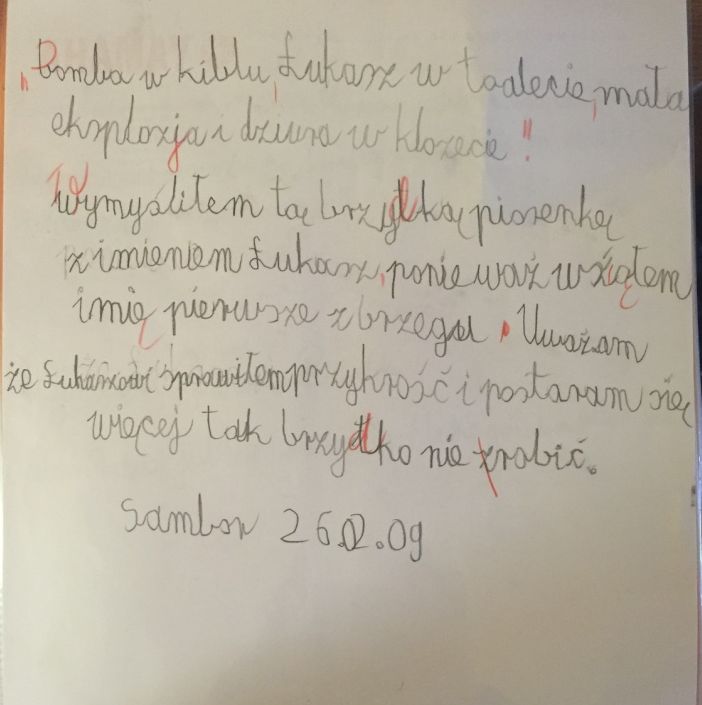 „Bomba w kiblu, Łukasz w toalecie, mała
eksplozja i dziura w klozecie"
Wymyśliłem tą brzydką piosenkę
z imieniem Łukasz, ponieważ wziąłem
imię pierwsze z brzegu. Uważam
że Łukaszowi sprawiłem przykrość i postaram się
więcej tak brzydko nie zrobić.
Sambor 26.02.09